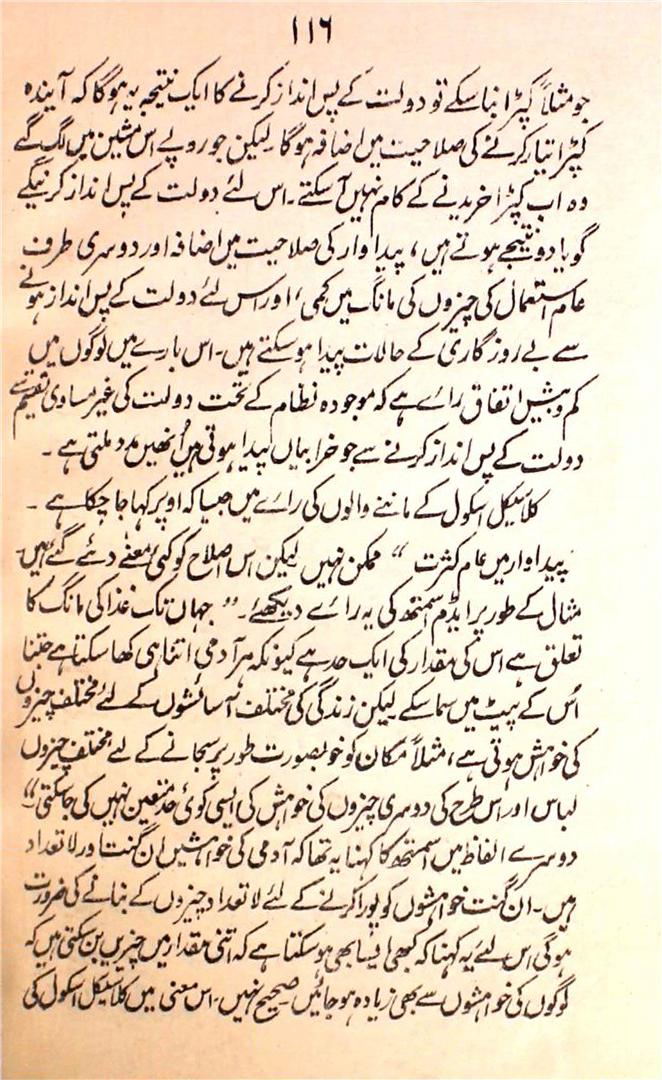 ۱۱۶
جو مثلاً کپڑا بنا سکے تو دولت کے پس انداز کرنے کا ایک نتیجہ یہ ہوگا کہ آیندہ
کپڑا تیار کرنے کی صلاحیت میں اضافہ ہوگا۔ لیکن جو روپے اس مشین میں لگ گئے
وہ اب کپڑا خریدنے کے کام نہیں آسکتے۔ اس لئے دولت کے پس انداز کرنیکے
گویا دو نتیجے ہوتے ہیں، پیداوار کی صلاحیت میں اضافہ اور دوسری طرف
عام استعمال کی چیزوں کی مانگ میں کمی، اور اس لئے دولت کے پس انداز ہونے
سے بے روزگاری کے حالات پیدا ہوسکتے ہیں۔ اس بارے میں لوگوں میں
کم و بیش اتفاق رائے ہے کہ موجودہ نظام کے تحت دولت کی غیر مساوی تقسیم سے
دولت کے پس انداز کرنے سے جو خرابیاں پیدا ہوتی ہیں اُنھیں مدد ملتی ہے۔
کلاسیکل اسکول کے ماننے والوں کی رائے میں جیسا کہ اوپر کہا جا چکا ہے۔
پیداوار میں عام کثرت “ ممکن نہیں لیکن اس اصلاح کو کئی معنے دئے گئے ہیں۔
مثال کے طور پر ایڈم اسمتھ کی یہ رائے دیکھئے۔ ” جہاں تک غذا کی مانگ کا
تعلق ہے اس کی مقدار کی ایک حد ہے کیونکہ ہر آدمی اتنا ہی کھا سکتا ہے جتنا
اُس کے پیٹ میں سما سکے لیکن زندگی کی مختلف آسائشوں کے لئے مختلف چیزوں
کی خواہش ہوتی ہے، مثلاً مکان کو خوبصورت طور پر سجانے کے لئے مختلف چیزوں
لباس اور اس طرح کی دوسری چیزوں کی خواہش کی ایسی کوئی حد متعین نہیں کی جاسکتی“
دوسرے الفاظ میں اسمتھ کا کہنا یہ تھا کہ آدمی کی خواہشیں ان گنت اور لاتعداد
ہیں۔ ان گنت خواہشوں کو پورا کرنے کے لئے لاتعداد چیزوں کے بنانے کی ضرورت
ہوگی اس لئے یہ کہنا کہ کبھی ایسا بھی ہوسکتا ہے کہ اتنی مقدار میں چیزیں بن سکتی ہیں کہ
لوگوں کی خواہشوں سے بھی زیادہ ہو جائیں صحیح نہیں۔ اس معنی میں کلاسیکل اسکول کی